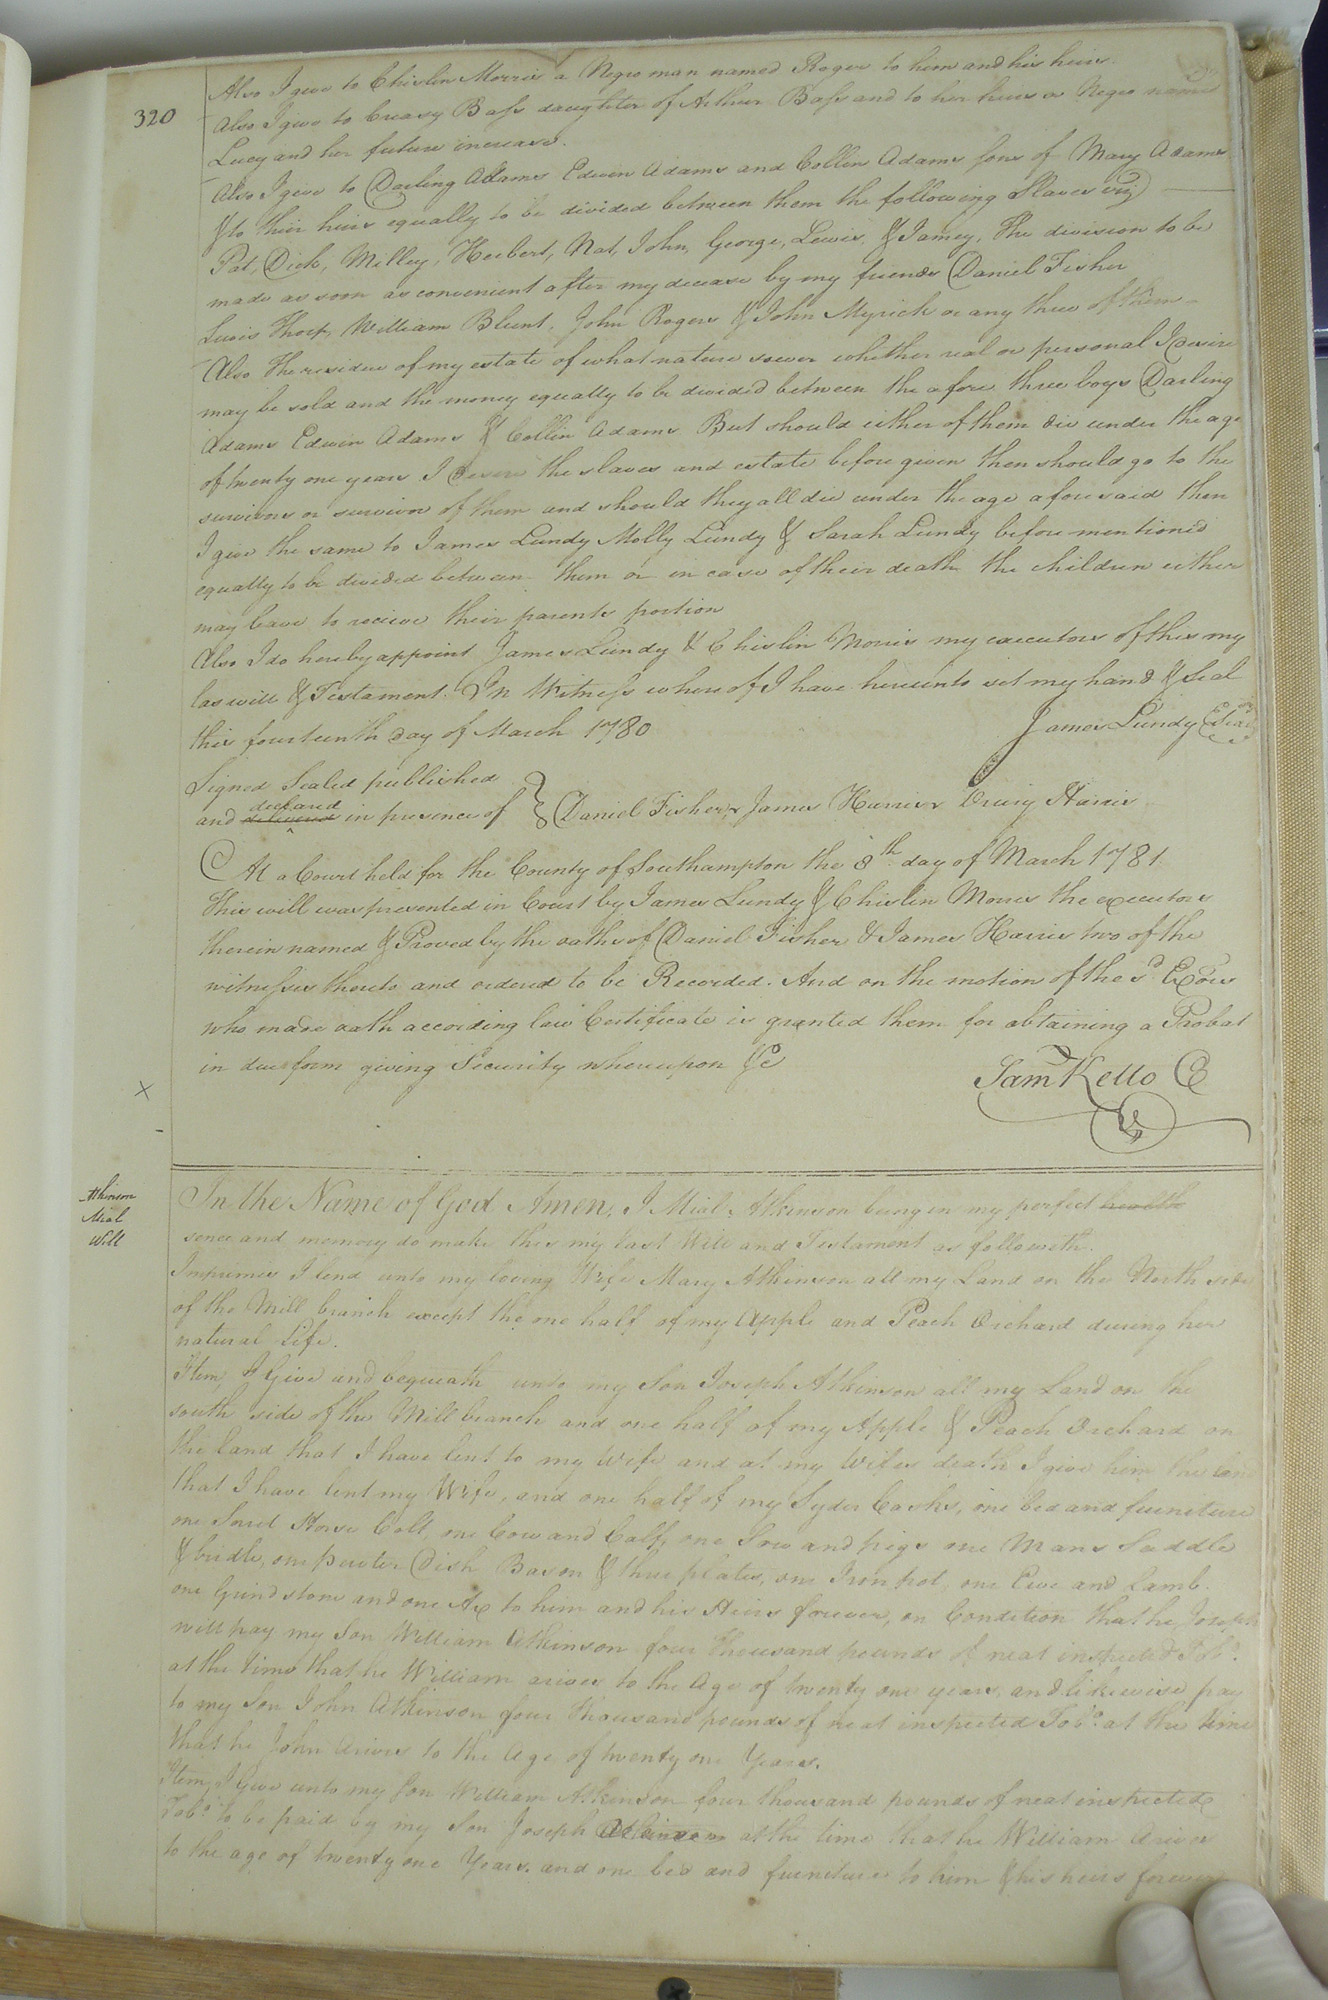 320
Also I give to Chislin Morris a Negro man named Roger to him and his heirs.
Also I give to Creasy Bass daughter of Arthur Bass and to her heirs a Negro named
Lucy and her future increase.
Also I give to Darling Adams Edwin Adams and Collin Adams sons of Mary Adams
& to their heirs equally to be divided between them the following Slaves viz
Pat, Dick, Milley, Herbert, Nat, John, George, Lewis, & Jamey, The division to be
made as soon as convenient after my decease by my friends Daniel Fisher
Lewis Thorp, William Blunt, John Rogers & John Myrick or any three of them -
Also The residue of my estate of what nature soever whether real or personal I desire
may be sold and the money equally to be divided between the afore three boys Darling
Adams Edwin Adams & Collin Adams But should either of them die under the age
of twenty one years I desire the slaves and estate before given then should go to the
survivors or survivor of them and should they all die under the age aforesaid then
I give the same to James Lundy Molly Lundy & Sarah Lundy before mentioned
equally to be divided between them or in case of their death the children either
may leave to receive their parents portion
Also I do hereby appoint James Lundy & Chislin Morris my executors of this my
las will & Testament. In Witness whereof I have hereunto set my hand & Seal
this fourteenth day of March 1780
James Lundy Seal
Signed Sealed published
and delivered declared in presence of } Daniel Fisher, James Harris Harris
At a Court held for the County of Southampton the 8th day of March 1781.
This will was presented in Court by James Lundy & Chislin Morris the executors
therein named & Proved by the oaths of Daniel Fisher & James Harris two of the
witnesses thereto and ordered to be Recorded. And on the motion of the sd Exors
who made oath according law Certificate is granted them for obtaining a Probat
in due form giving Security whereupon &c
Sam Kello C
x
Atkinson
Mial
Will
In the Name of God Amen, I Mial Atkinson being in my perfect health
sence and memory do make this my last Will and Testament as followeth.
Imprimis I lend unto my loving Wife Mary Atkinson all my Land on the North side
of the Mill branch except the one half of my Apple and Peach Orchard during her
natural Life.
Item, I Give and bequeath unto my Son Joseph Atkinson all my Land on the
south side of the Mill branch and one half of my Apple & Peach Orchard on
the land that I have lent to my Wife and at my Wifes death I give him the land
that I have lent my Wife, and one half of my Syder Casks, one bed and furniture
one Sorrel Horse Colt, one Cow and Calf, one Sow and pigs one Mans Saddle
& bridle, one pewter Dish Bason & three plates, one Iron pot, one Ewe and Lamb.
one Grind stone and one Ax to him and his Heirs forever, on Condition that he Joseph
will pay my Son William Atkinson four thousand pounds of neat inspected Tobo.
at the time that he William arives to the Age of twenty one years, and likewise pay
to my Son John Atkinson four thousand pounds of neat inspected Tobo. at the time
that he John arives to the Age of twenty one Years.
Item, I Give unto my Son William Atkinson four thousand pounds of neat inspected
Tobo. to be paid by my Son Joseph Atkinson at the time that he William arives
to the age of twenty one Years, and one bed and furniture to him & his heirs forever